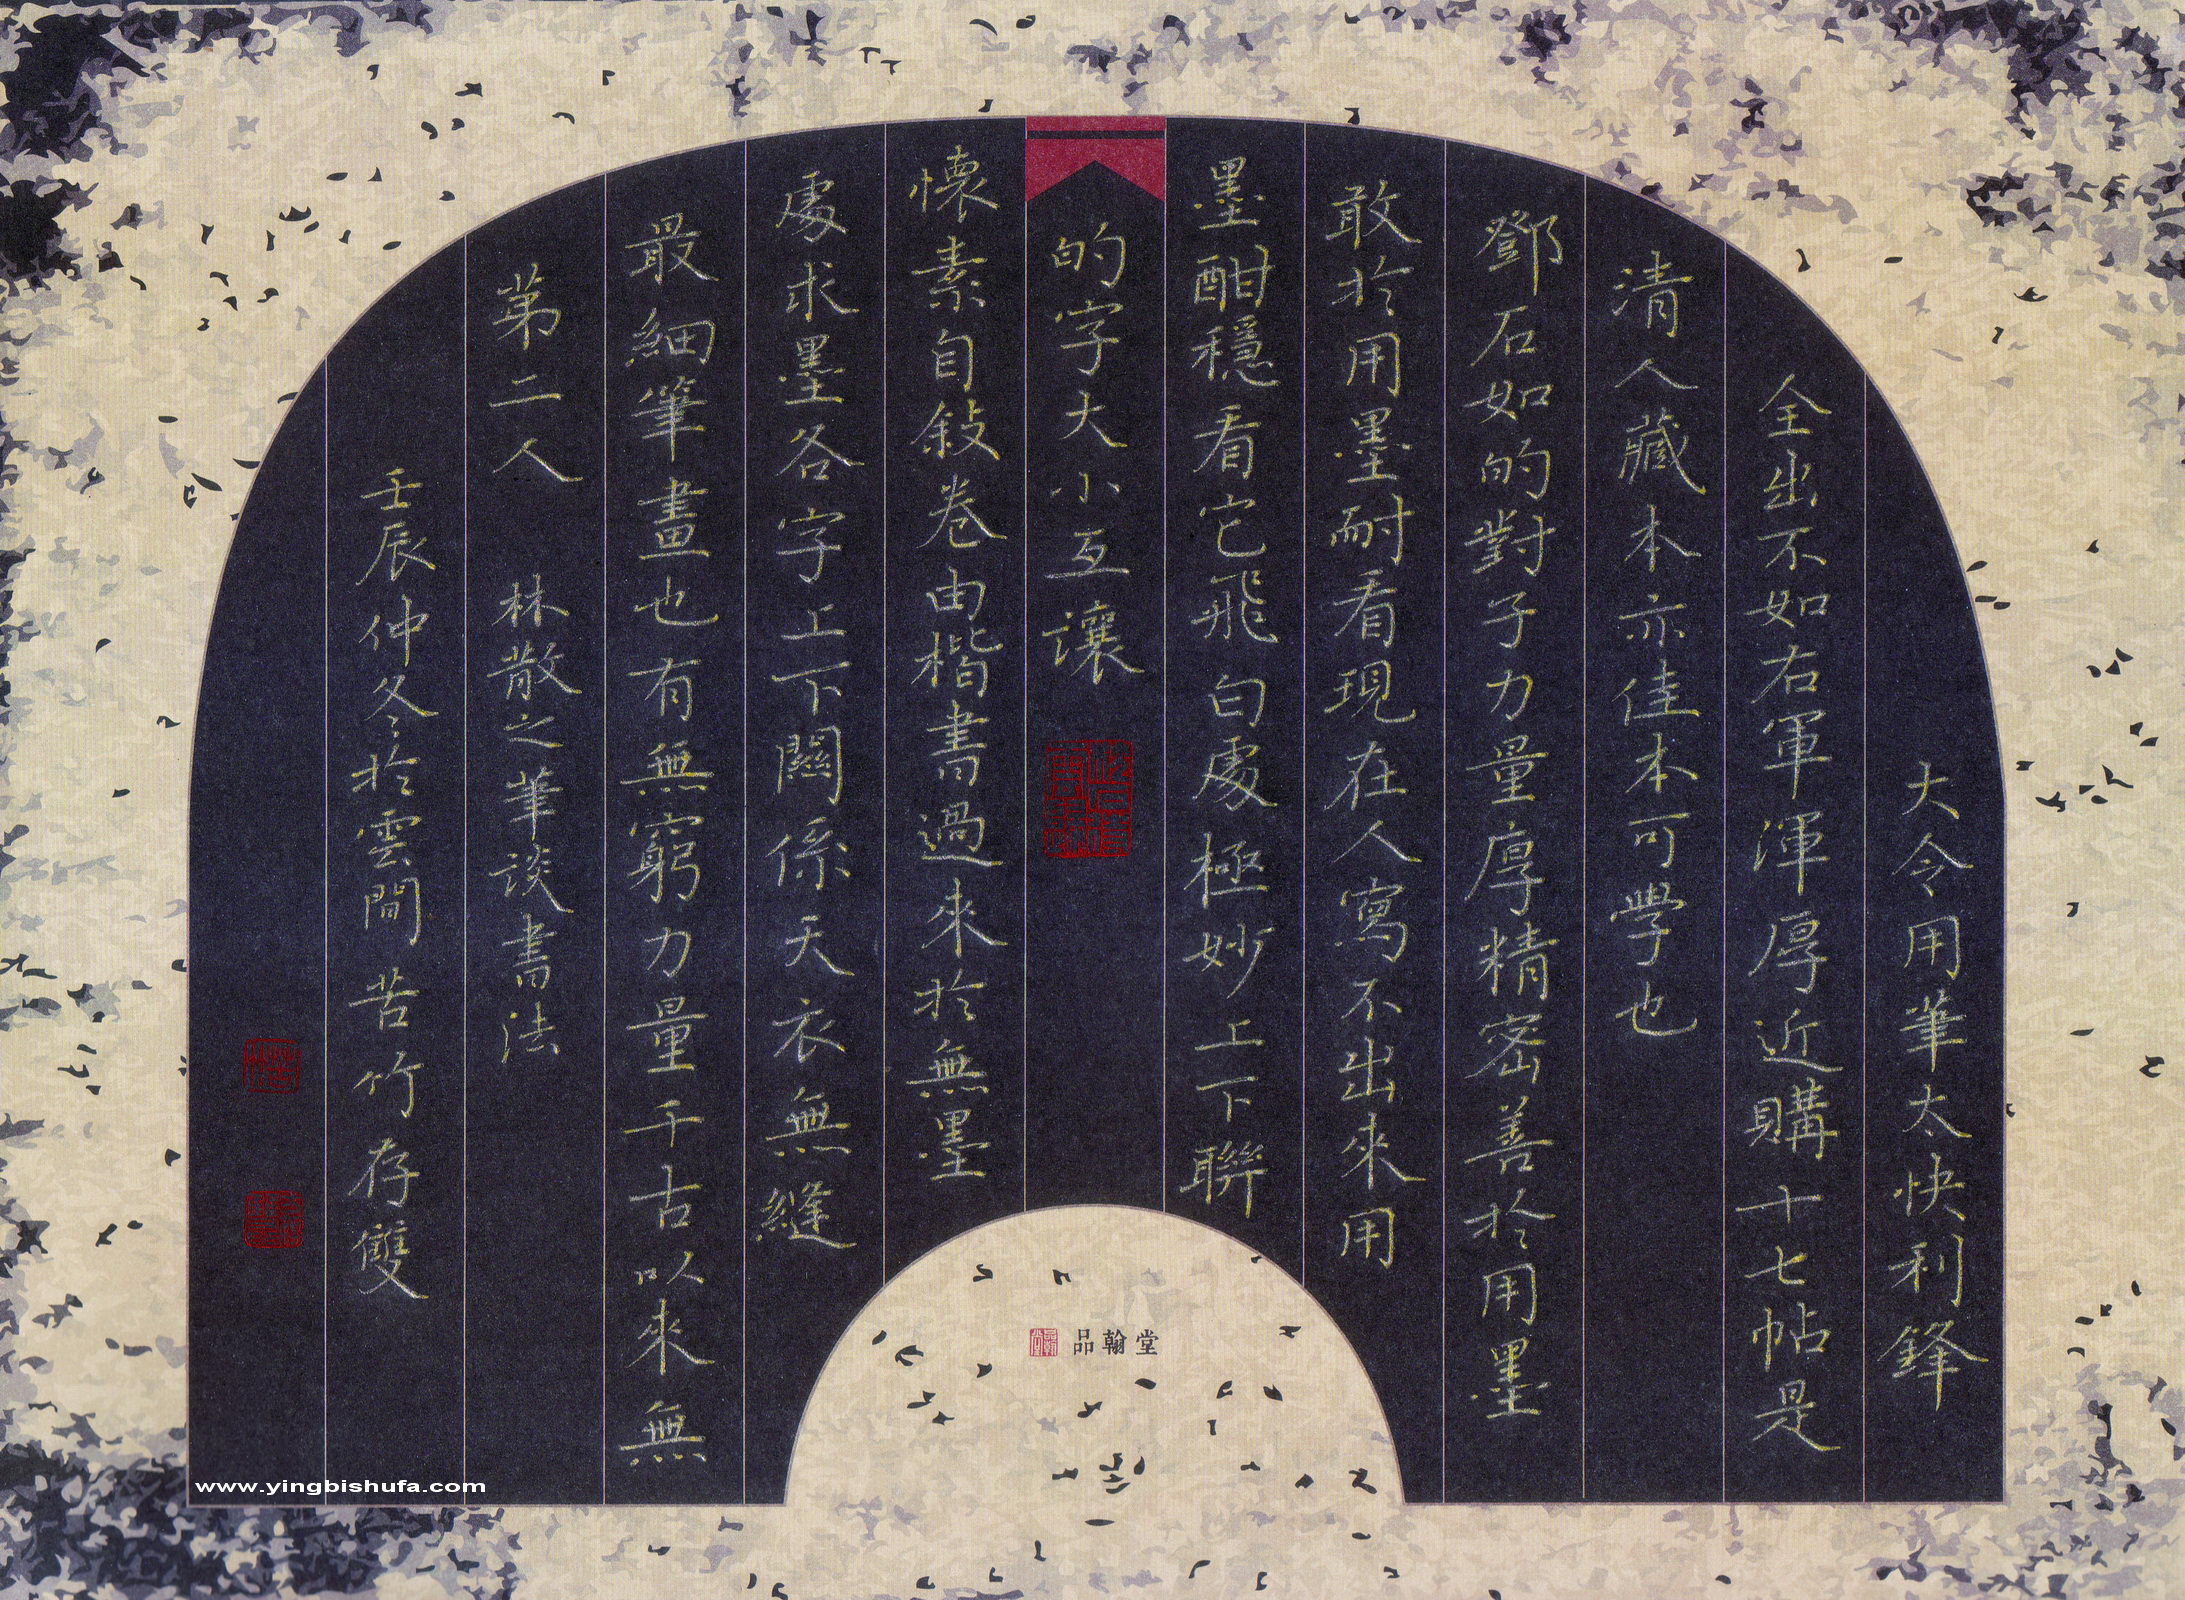 大令用筆太快利鋒
全出不如右軍渾厚近購十七帖是
清人藏本亦佳本可學也
鄧石如的對子力量厚精密善於用墨
敢於用墨耐看現在人寫不出來用
墨酣穩看它飛白處極妙上下聯
的字大小互讓
懷素自敍卷由楷書過來於無墨
處求墨各字上下關係天衣無縫
最細筆畫也有無窮力量千古以來無
第二人 林散之筆談書法
壬辰仲冬於雲間苦竹存雙
品翰堂
www.yingbishufa.com